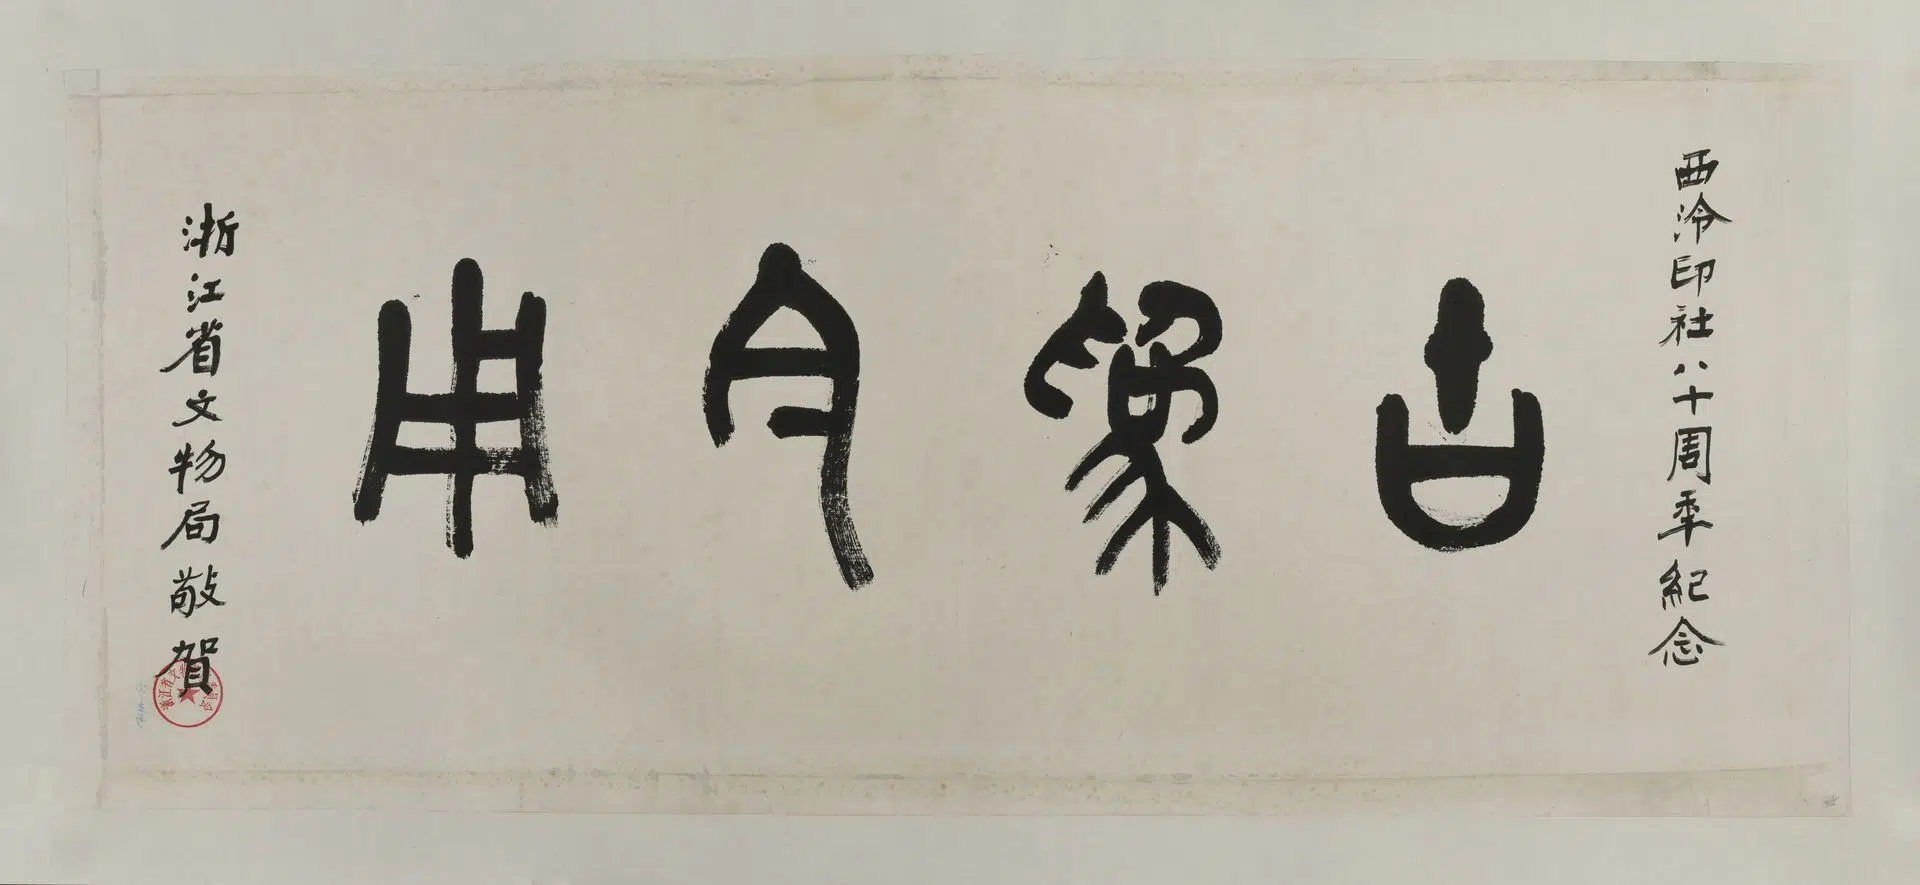 西泠印社八十周年紀念
古為今用
浙江省文物局敬賀